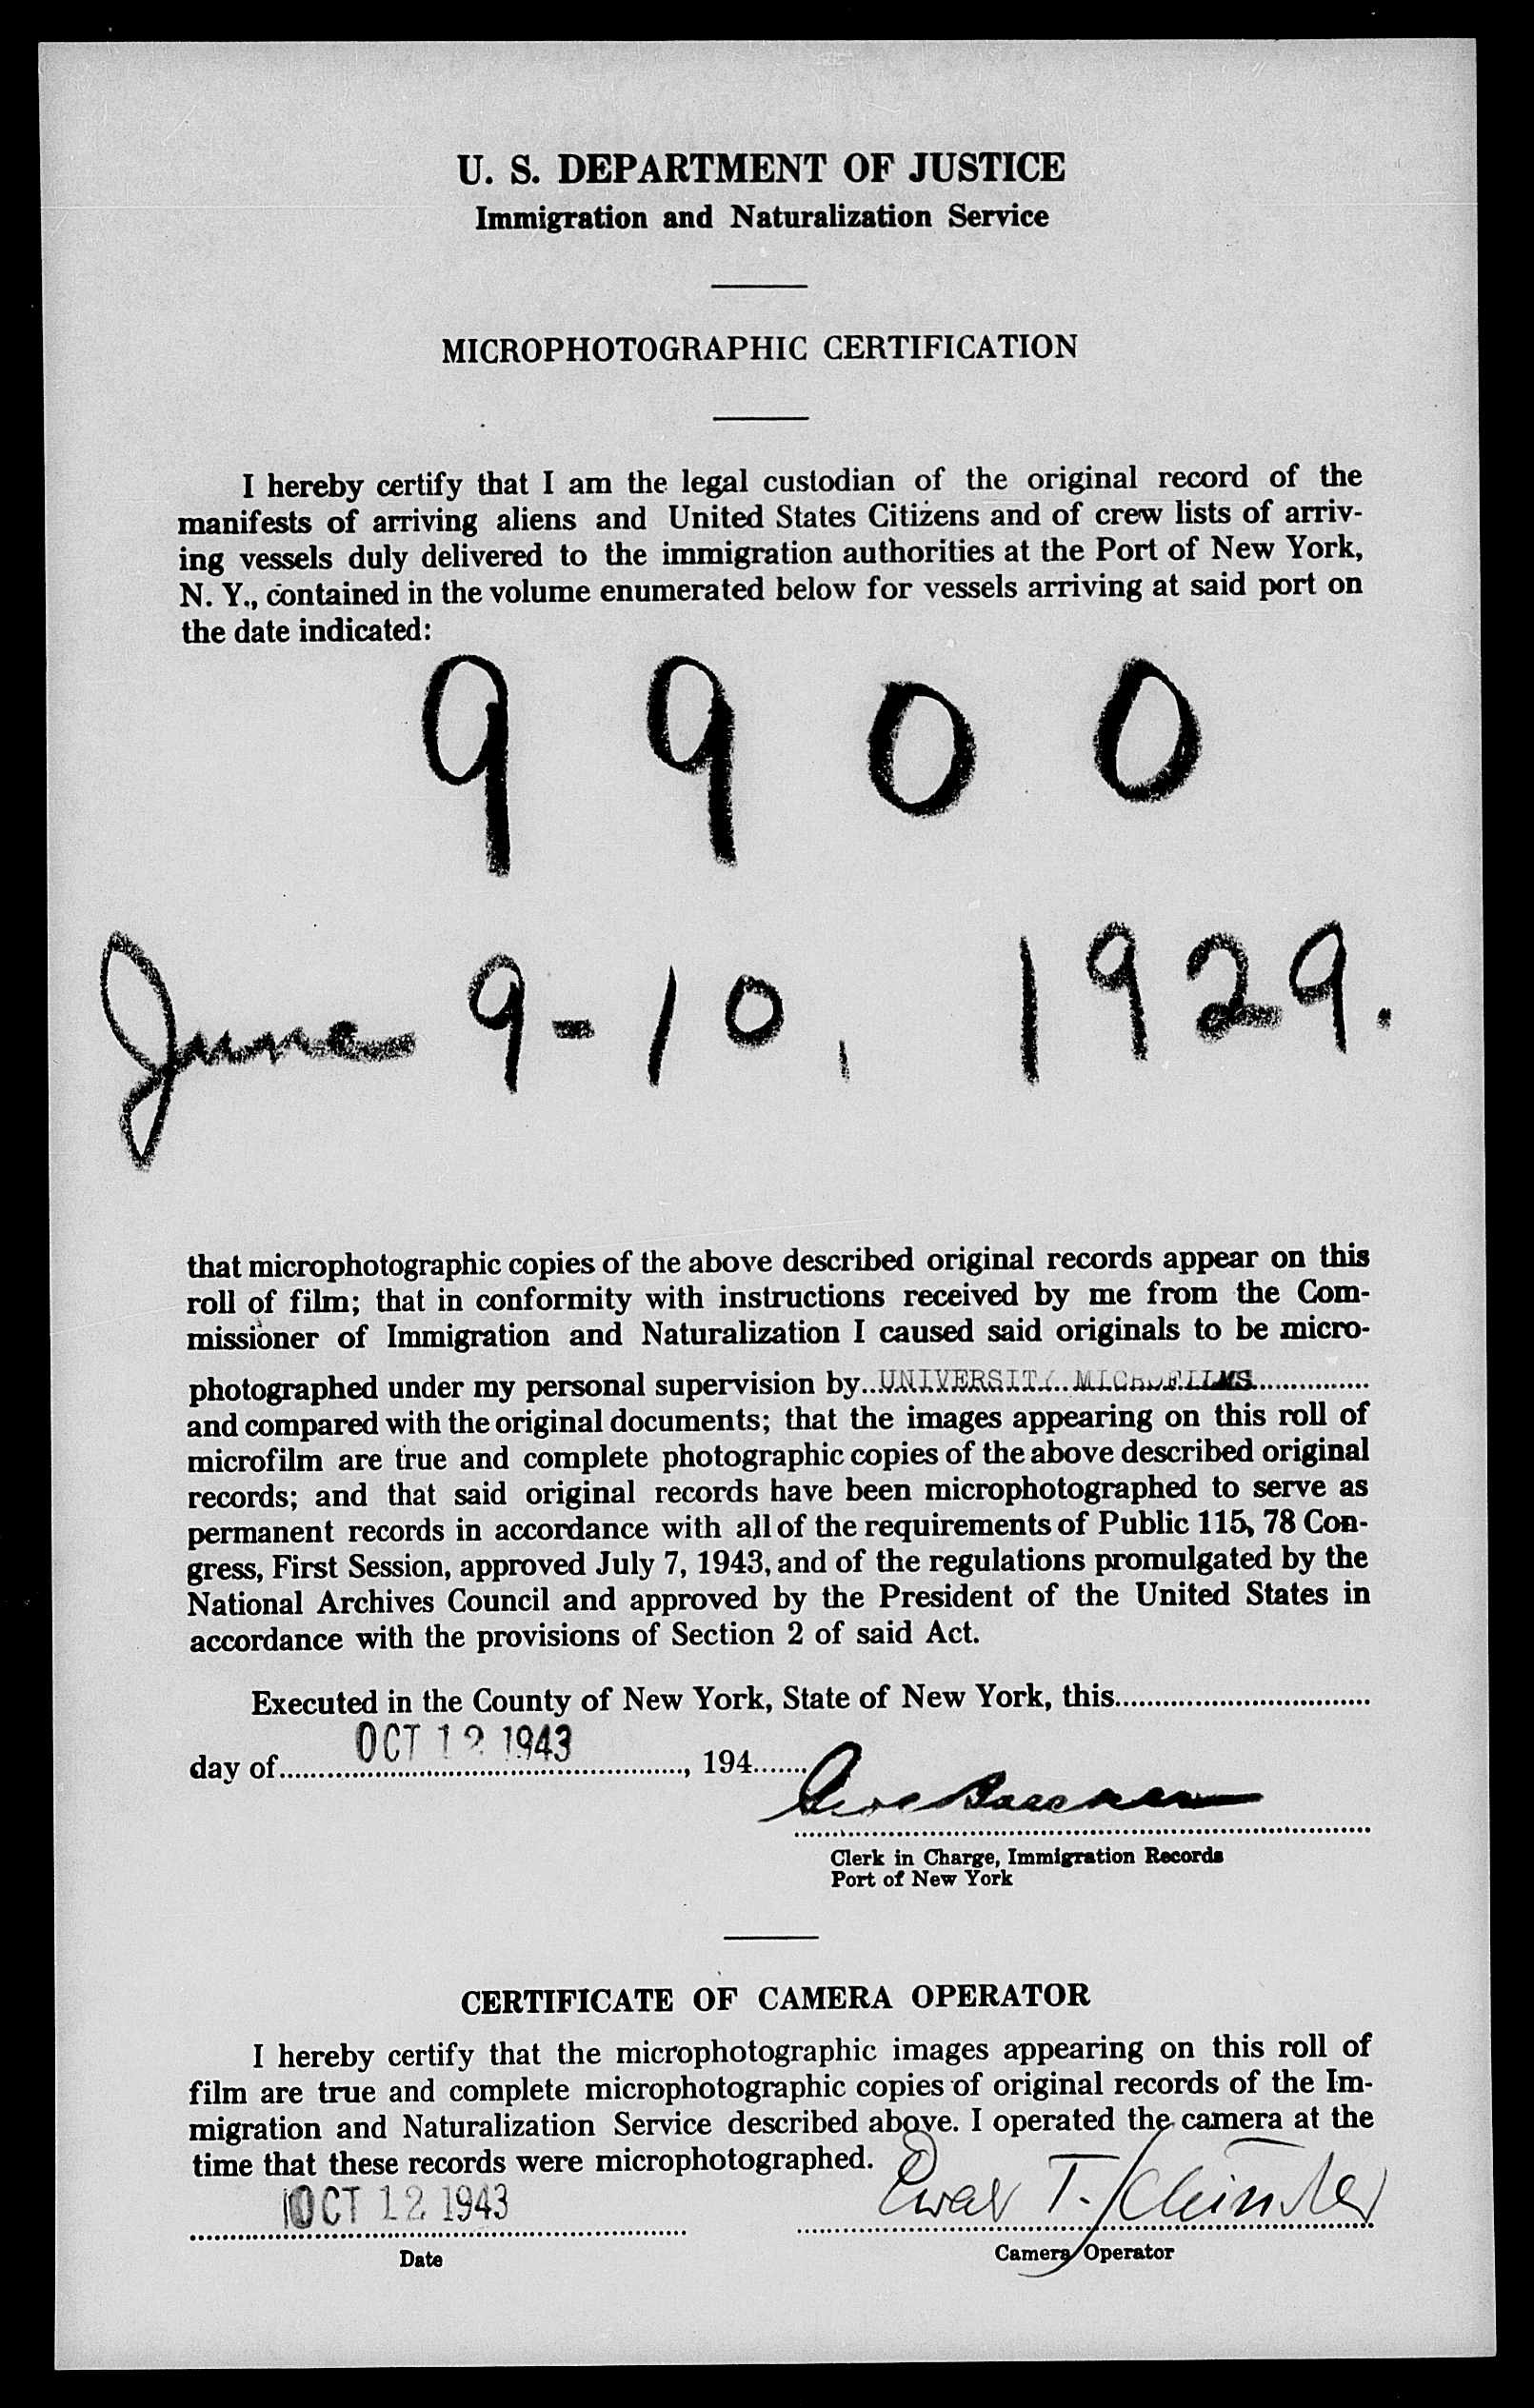 U. S. DEPARTMENT OF JUSTICE
Immigration and Naturalization Service
MICROPHOTOGRAPHIC CERTIFICATION
I hereby certify that I am the legal custodian of the original record of the
manifests of arriving aliens and United States Citizens and of crew lists of arriv-
ing vessels duly delivered to the immigration authorities at the Port of New York,
N. Y., contained in the volume enumerated below for vessels arriving at said port on
the date indicated:
9 9 0 0
June 9-10, 1929.
that microphotographic copies of the above described original records appear on this
roll of film; that in conformity with instructions received by me from the Com-
missioner of Immigration and Naturalization I caused said originals to be micro-
photographed under my personal supervision by..UNIVERSITY MICROFILMS...............
and compared with the original documents; that the images appearing on this roll of
microfilm are true and complete photographic copies of the above described original
records; and that said original records have been microphotographed to serve as
permanent records in accordance with all of the requirements of Public 115, 78 Con-
gress, First Session, approved July 7, 1943, and of the regulations promulgated by the
National Archives Council and approved by the President of the United States in
accordance with the provisions of Section 2 of said Act.
Executed in the County of New York, State of New York, this................................
day of......OCT 12 1943......, 194.......
Clerk in Charge, Immigration Records
Port of New York
CERTIFICATE OF CAMERA OPERATOR
I hereby certify that the microphotographic images appearing on this roll of
film are true and complete microphotographic copies of original records of the Im-
migration and Naturalization Service described above. I operated the camera at the
time that these records were microphotographed.
OCT 12 1943 T.
Date Camera Operator